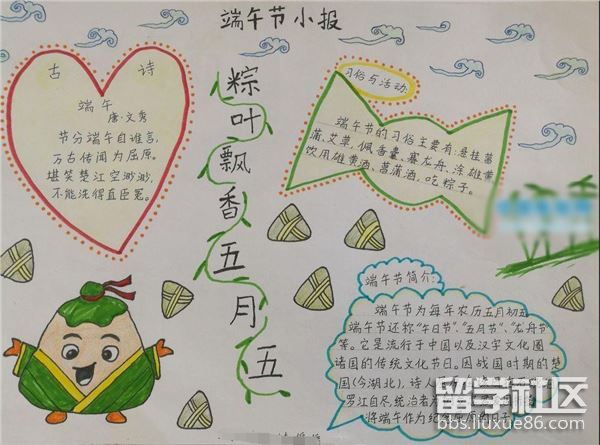 端午节小报
古诗
端午
唐·文秀
节分端午自谁言,
万古传闻为屈原。
堪笑楚江空渺渺,
不能洗得直臣冤。
粽叶飘香五月五
习俗与活动
端午节的习俗主要有:悬挂菖
蒲、艾草,佩香囊,赛龙舟,涂雄黄
饮用雄黄酒、菖蒲酒,吃粽子。
端午节简介:
端午节为每年农历五月初五
端午节还称"午日节"、"五月节"、"龙舟节"
等。它是流行于中国以及汉字文化圈
诸国的传统文化节日。因战国时期的楚
国(今湖北),诗人
罗江自尽,统治者为
将端午作为纪念屈原的日子
留学社区
bbs.liuxue86.com